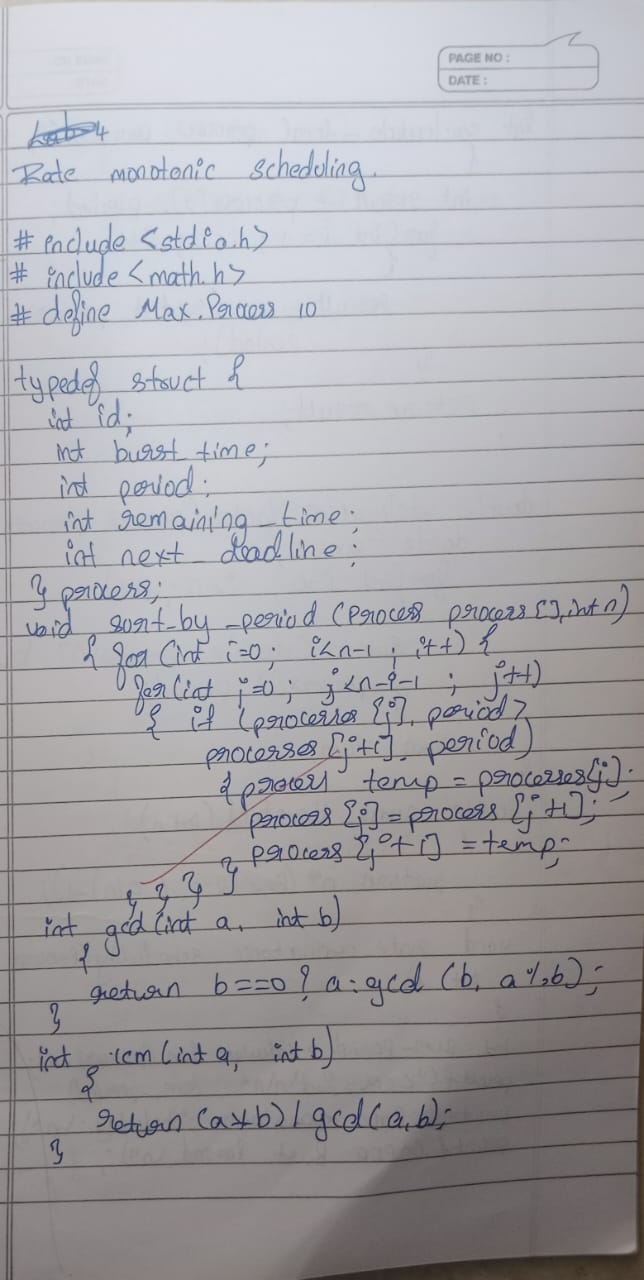 PAGE NO :
DATE :
Lab 4
Rate monotonic scheduling.
# include <stdio.h>
# include <math.h>
# define Max.Process 10
typedef struct {
int id;
int burst_time;
int period;
int remaining_time;
int next_deadline;
} process;
void sort-by-period (Process process[], int n)
{ for (int i=0; i<n-1; i++) {
for (int j=0; j<n-i-1; j++)
{ if (processes[j].period >
processes[j+1].period)
{ process temp = processes[j];
process[j] = process[j+1];
process[j+1] = temp;
} } } }
int gcd (int a, int b)
{
return b==0 ? a : gcd (b, a%b);
}
int lcm (int a, int b)
{
return (a*b) / gcd(a,b);
}